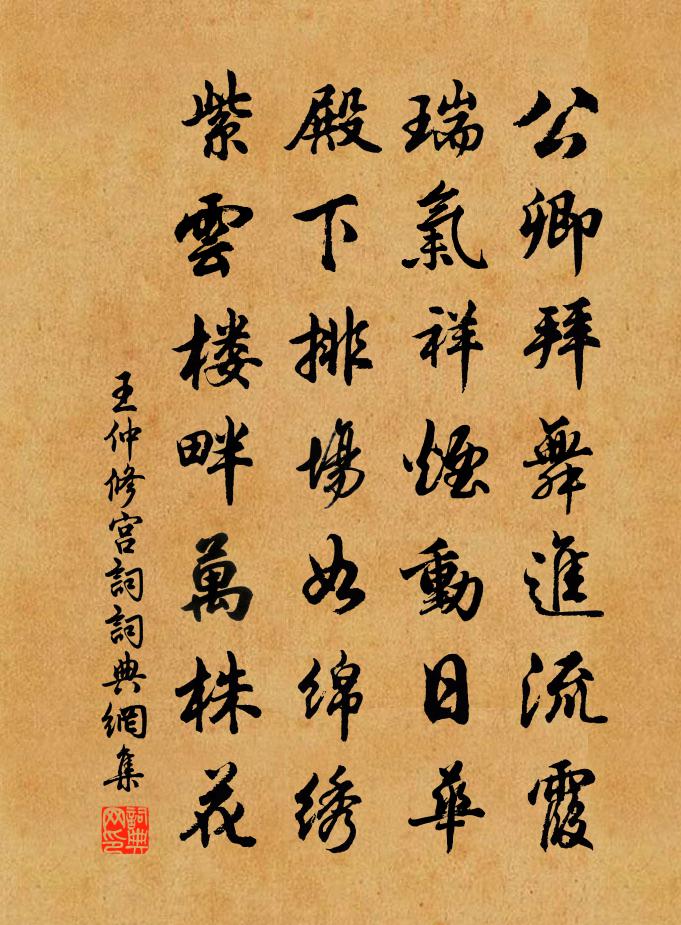 公卿拜舞進流霞
瑞氣祥煙動日華
殿下排場如綿绣
紫雲楼畔萬株花
王仲修宫詞詞典網集
詞典网印